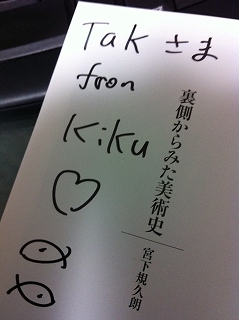 Tak さま
from
Kiku
裏側からみた美術史
宮下規久朗